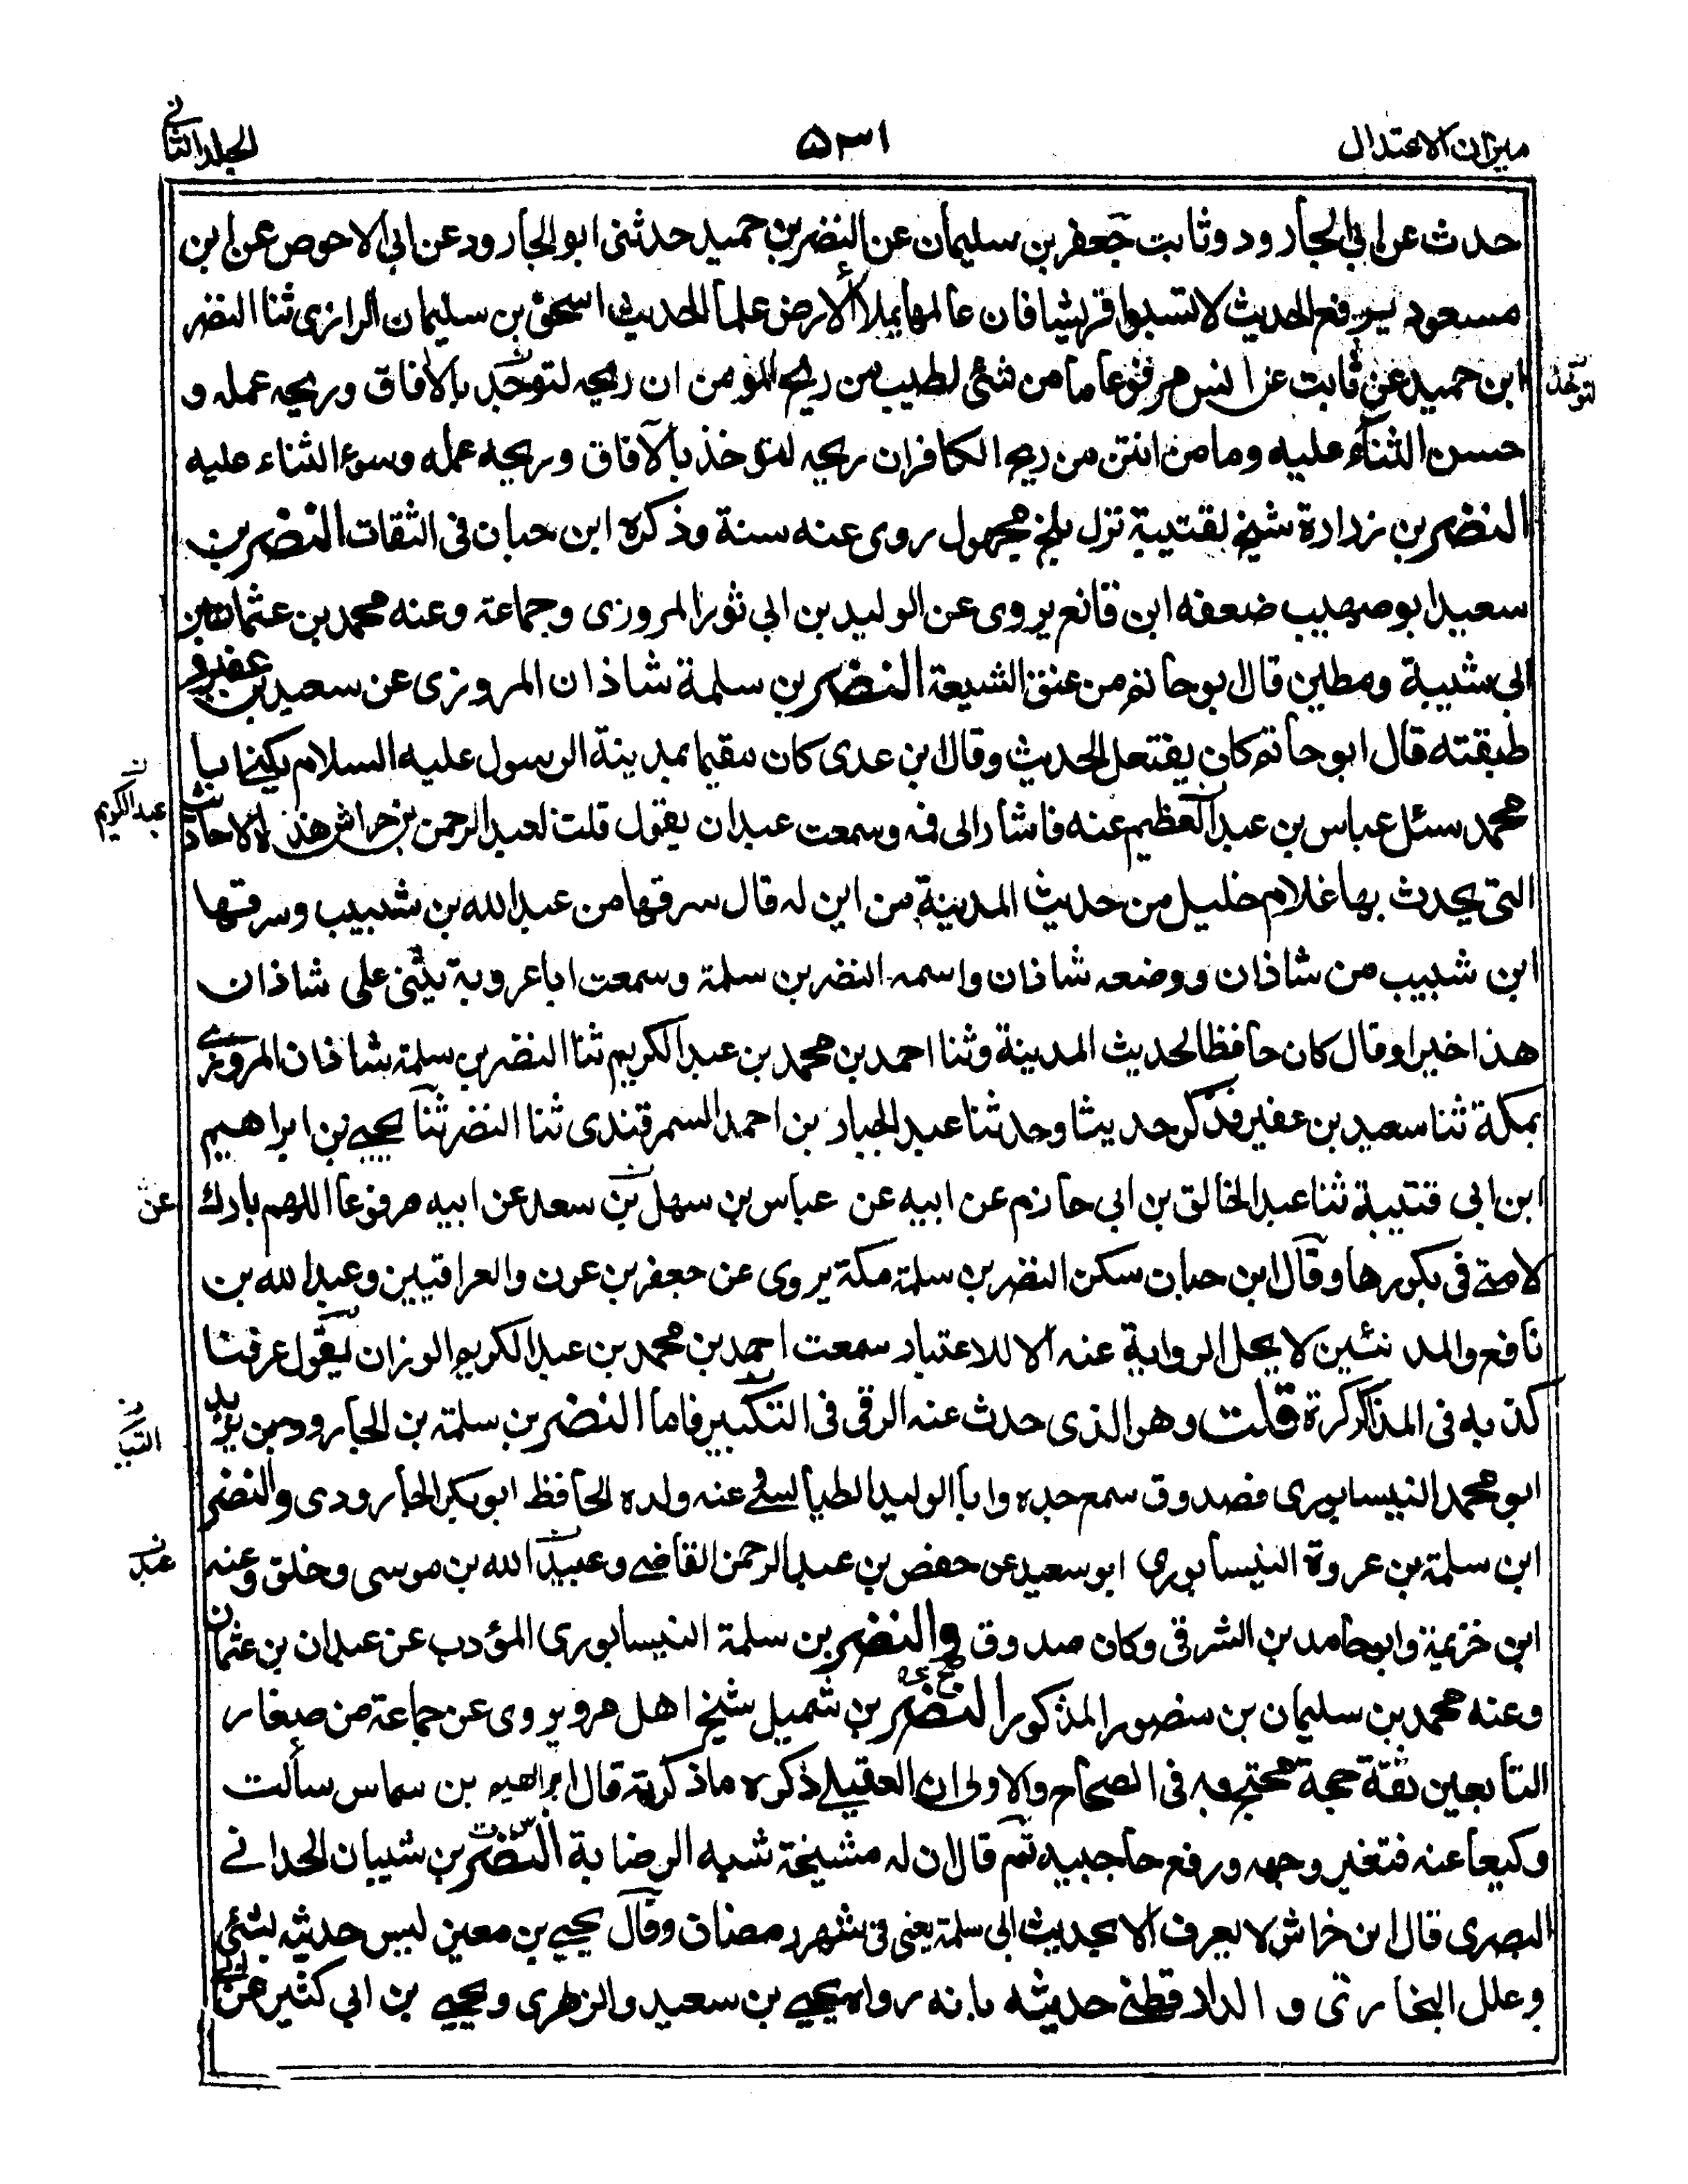 ميزان الاعتدال
۵۳۱
الجلد الثاني
حدث عن ابي الجارود وثابت جعفر بن سليمان عن النضر بن حميد حدثنى ابو الجارود عن ابي الاحوص عن ابن
مسعود يرفع الحديث لا تسبوا قريشا فان عالمها يملأ الارض علما الحديث اسحق بن سليمان الرازى ثنا النضر
ابن حميد عن ثابت عن انس مرفوعا ما من شئ اطيب من ريح المومن ان ريحه لتوجد بالافاق وريحه عمله و
لتوخذ
حسن الثناء عليه وما من انتن من ريح الكافر ان ريحه لتوخذ بالآفاق وريحه عمله وسوء الثناء عليه
النضر بن زرارة شيخ لقتيبة نزل بلخ مجهول روى عنه ستة وذكره ابن حبان فى الثقات النضر بن
سعيد ابو صهيب ضعفه ابن قانع يروى عن الوليد بن ابي ثور المروزى وجماعة وعنه محمد بن عثمان بن
ابى شيبة ومطين قال ابو حاتم من عتق الشيعة النضر بن سلمة شاذان المروزى عن سعيد بن عفير و
طبقته قال ابو حاتم كان يفتعل الحديث وقال ابن عدى كان مقيما بمدينة الرسول عليه السلام يكنى ابا
محمد سئل عباس بن عبد العظيم عنه فاشار الى فمه وسمعت عبدان يقول قلت لعبد الرحمن بن خراش هذه الاحاديث
عبد الكريم
التى يحدث بها غلام خليل من حديث المدينة من اين له قال سرقها من عبد الله بن شبيب وسرقها
ابن شبيب من شاذان ووضعه شاذان واسمه النضر بن سلمة وسمعت ابا عروبة يثنى على شاذان
هذا خيرا وقال كان حافظا لحديث المدينة وثنا احمد بن محمد بن عبد الكريم ثنا النضر بن سلمة شاذان المروزى
بمكة ثنا سعيد بن عفير فذكر حديثا وحدثنا عبد الجبار بن احمد السمرقندى ثنا النضر ثنا يحيى بن ابراهيم
ابن ابى قتيبة ثنا عبد الخالق بن ابى حازم عن ابيه عن عباس بن سهل بن سعد عن ابيه مرفوعا اللهم بارك
عن
لامتى فى بكورها وقال ابن حبان سكن النضر بن سلمة مكة يروى عن جعفر بن عون والعراقيين وعبد الله بن
نافع والمدنيين لا يحل الرواية عنه الا للاعتبار سمعت احمد بن محمد بن عبد الكريم الوزان يقول عرفنا
كذبه فى المذاكرة قلت وهو الذى حدث عنه الرقى فى التكبير فاما النضر بن سلمة بن الجارود بن يزيد
ابو محمد النيسابورى فصدوق سمع جده وابا الوليد الطيالسى عنه ولده الحافظ ابو بكر الجارودى والنضر
ابن سلمة بن عروة النيسابورى ابو سعيد عن حفص بن عبد الرحمن القاضى وعبيد الله بن موسى وخلق وعنه
عبد
ابن خزيمة وابو حامد بن الشرقى وكان صدوق والنضر بن سلمة النيسابورى المؤدب عن عبدان بن عثمان
وعنه محمد بن سليمان بن منصور المذكور النضر بن شميل شيخ اهل مرو يروى عن جماعة من صغار
التابعين ثقة حجة محتج به فى الصحاح والاولى ان العقيلى ذكره ما ذكرته قال ابراهيم بن سماس سألت
وكيعا عنه فتغير وجهه ورفع حاجبيه ثم قال ان له مشيخة شبه الرضا به النضر بن شيبان الحدانى
البصرى قال ابن خراش لا يعرف الا بحديث ابى سلمة يعنى فى شهر رمضان وقال يحيى بن معين ليس حديثه بشئ
وعلل البخارى و الدارقطنى حديثه بانه رواه يحيى بن سعيد والزهرى ويحيى بن ابى كثير عن ابى